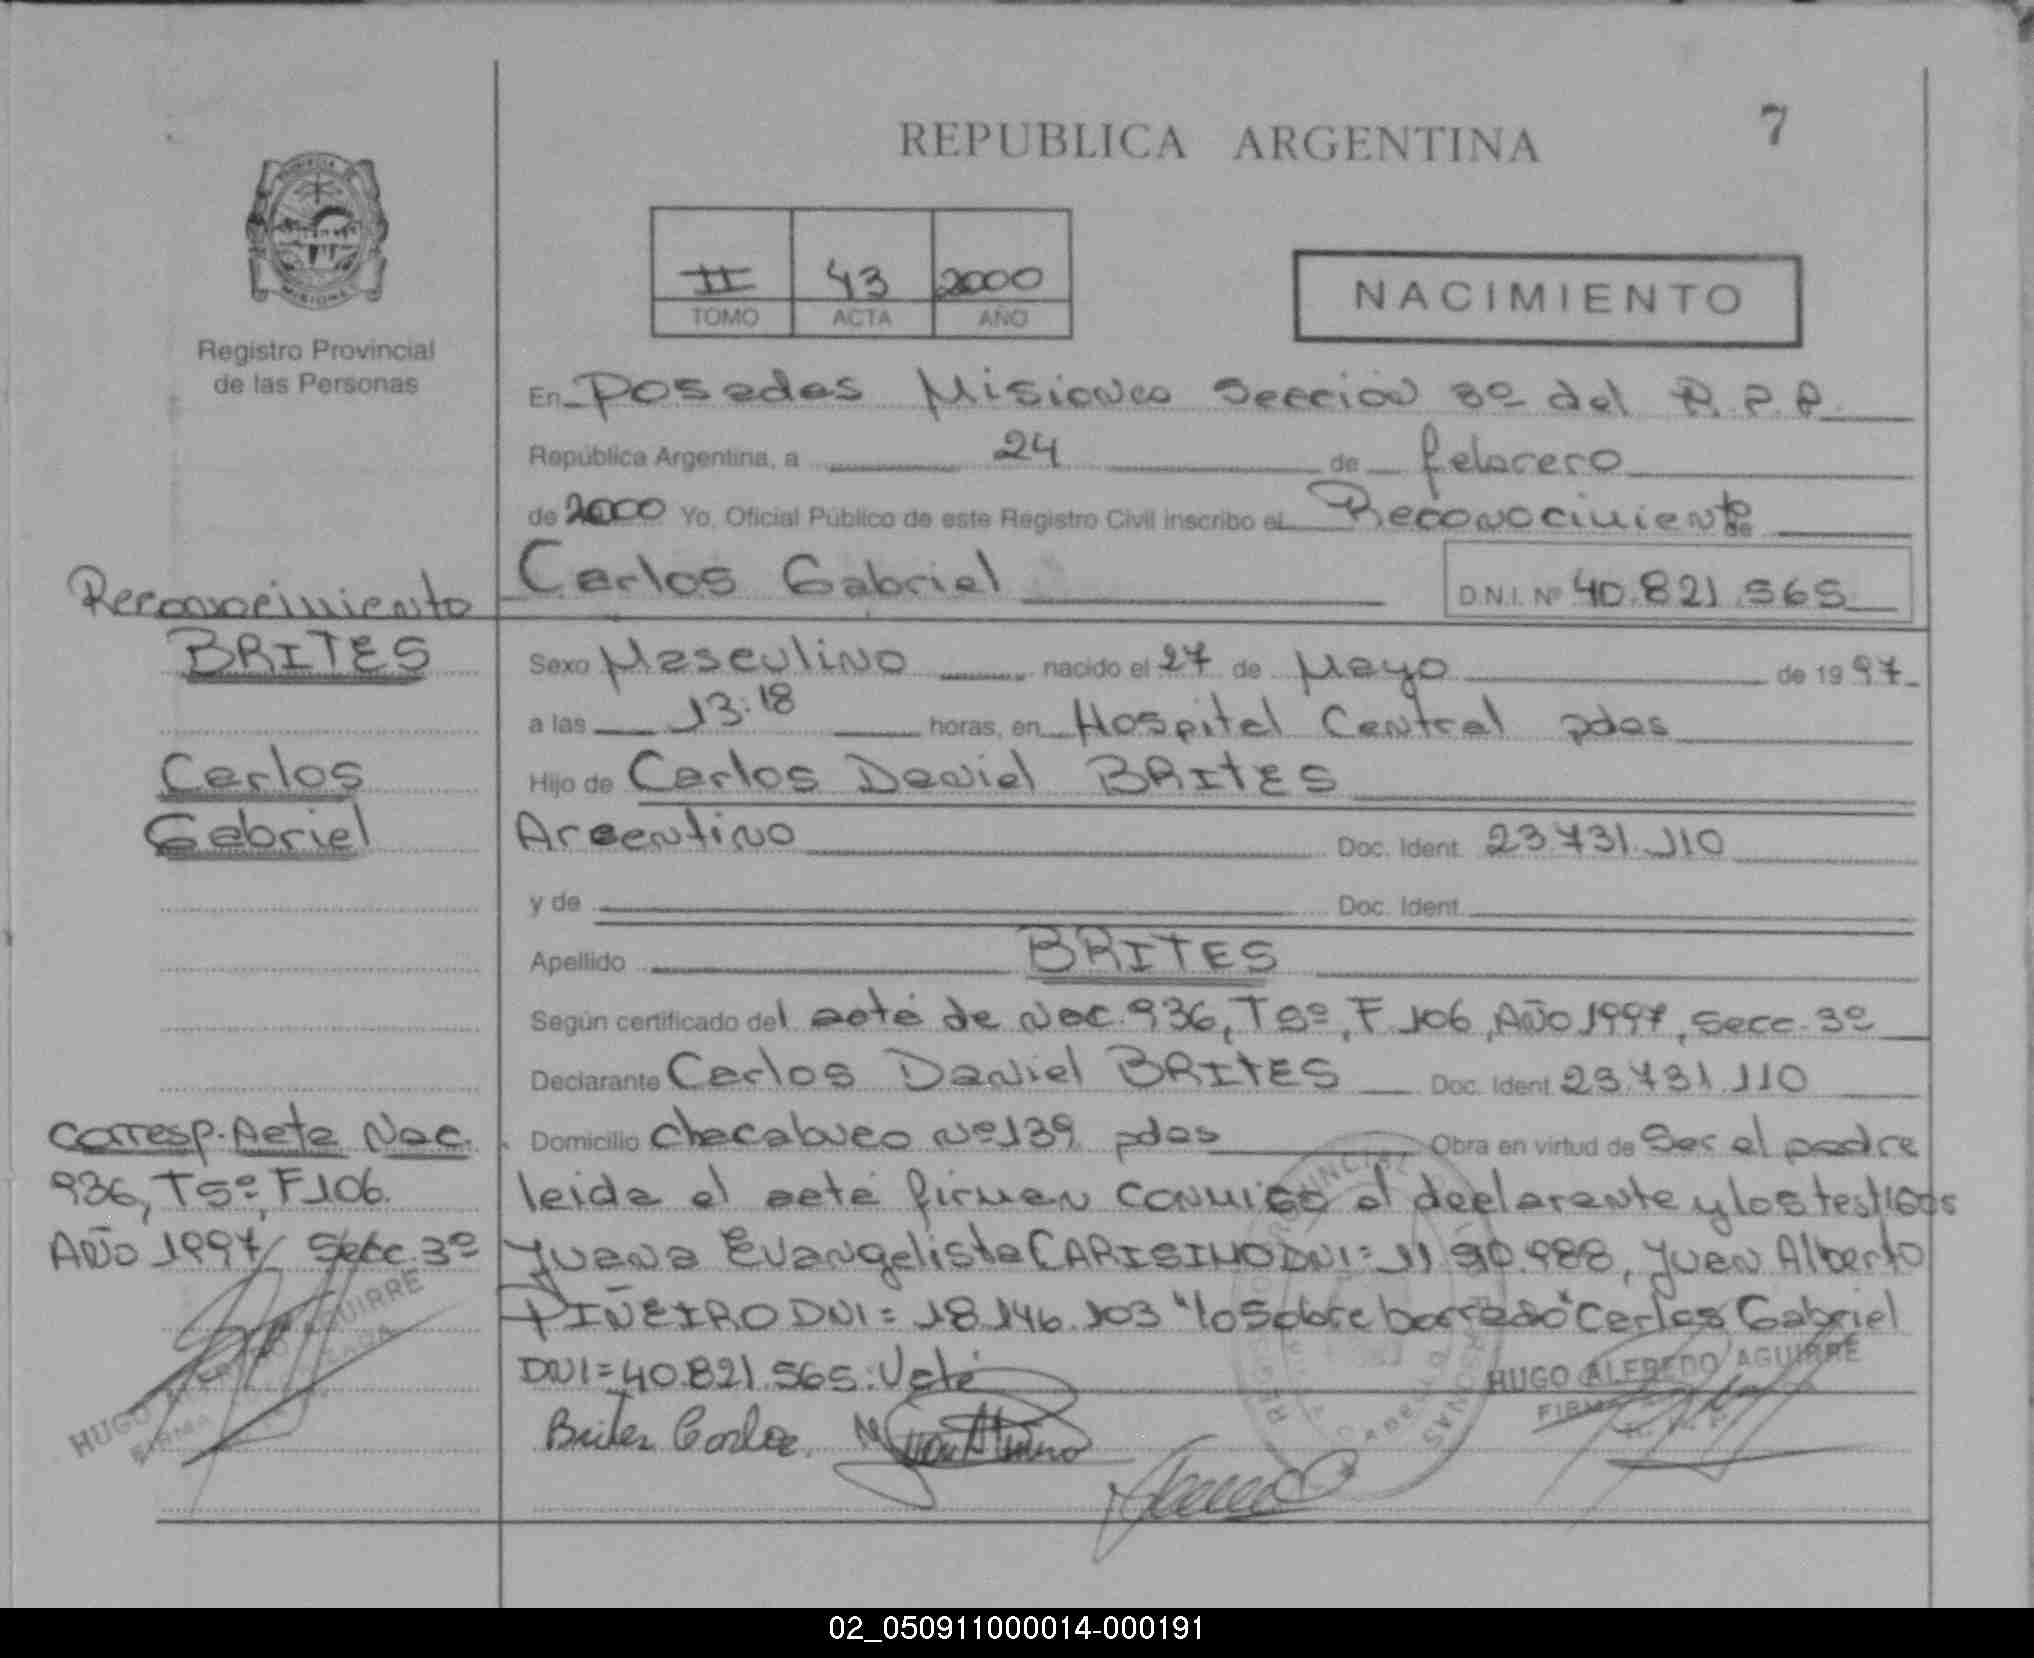 REPUBLICA ARGENTINA
7
PROVINCIA
MISIONES
Registro Provincial
de las Personas
II 43 2000
TOMO ACTA AÑO
NACIMIENTO
En Posadas Misiones Sección 3º del R.P.P.
República Argentina, a 24 de febrero
de 2000 Yo, Oficial Público de este Registro Civil inscribo el Reconocimiento de
Carlos Gabriel D.N.I. Nº 40.821.565
Sexo Masculino nacido el 27 de Mayo de 1997
a las 13:18 horas, en Hospital Central pdas
Hijo de Carlos Daniel BRITES
Argentino Doc. Ident. 23.731.110
y de Doc. Ident.
Apellido BRITES
Según certificado del acta de Nac. 936, T 5º, F 106, Año 1997, Secc. 3º
Declarante Carlos Daniel BRITES Doc. Ident. 23.731.110
Domicilio Chacabuco Nº 139 pdas Obra en virtud de Ser el padre
leida el acta firman conmigo el declarante y los testigos
Juana Evangelista CARISIMO DNI= 11 988, Juan Alberto
PIÑEIRO DNI= 18.146.103 "lo sobre borrado" Carlos Gabriel
DNI= 40.821.565. Vale
Brites Carlos
HUGO ALFREDO AGUIRRE
Reconocimiento
BRITES
Carlos
Gabriel
Corresp. Acta Nac.
936, T 5º, F 106.
Año 1997, Secc. 3º
HUGO AGUIRRE
FIRMA
02_050911000014-000191